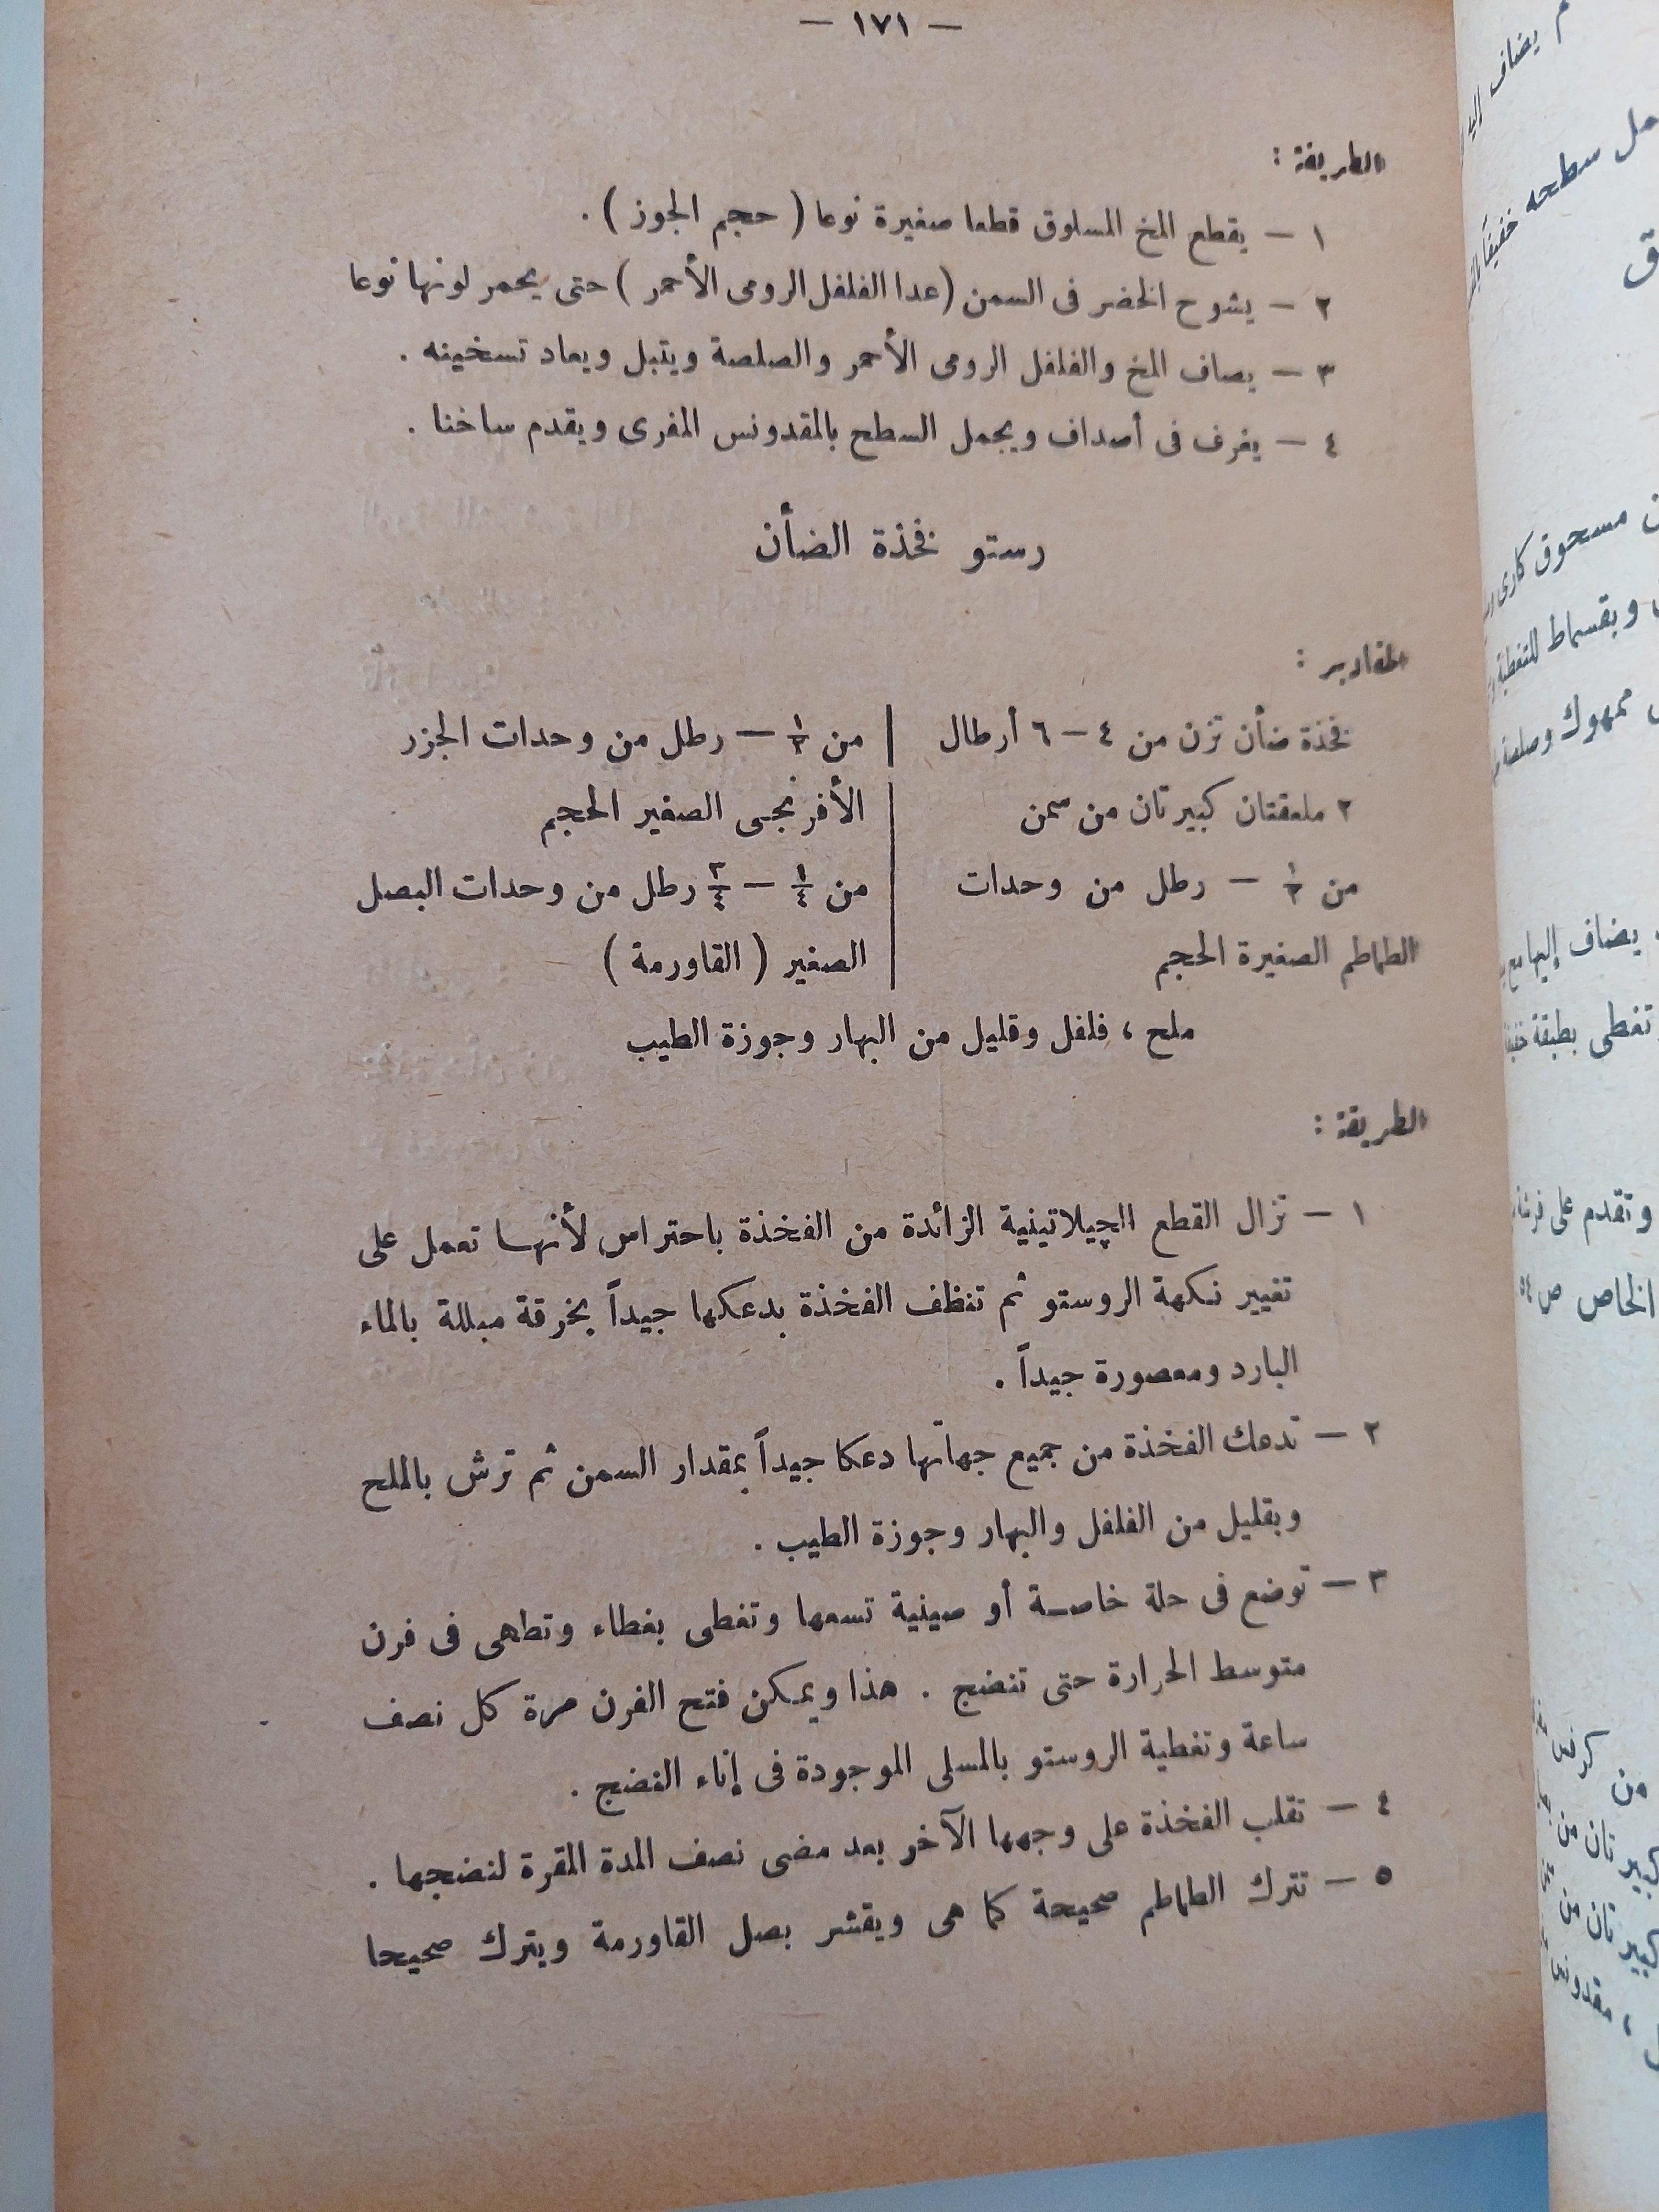 — ١٧١ —
الطريقة :
١ — يقطع المخ المسلوق قطعا صغيرة نوعا ( حجم الجوز ) .
٢ — يشوح الخضر فى السمن (عدا الفلفل الرومى الأحمر ) حتى يحمر لونها نوعا
٣ — يصاف المخ والفلفل الرومى الأحمر والصلصة ويتبل ويعاد تسخينه .
٤ — يغرف فى أصداف ويجمل السطح بالمقدونس المفرى ويقدم ساخنا .
رستو فخذة الضأن
المقادير :
فخذة ضأن تزن من ٤ — ٦ أرطال
٢ ملعقتان كبيرتان من سمن
من ١/٢ — رطل من وحدات
الطماطم الصغيرة الحجم
من ١/٢ — رطل من وحدات الجزر
الأفرنجى الصغير الحجم
من ١/٤ — ٣/٤ رطل من وحدات البصل
الصغير ( القاورمة )
ملح ، فلفل وقليل من البهار وجوزة الطيب
الطريقة :
١ — تزال القطع الچيلاتينية الزائدة من الفخذة باحتراس لأنها تعمل على
تغيير نكهة الروستو ثم تنظف الفخذة بدعكها جيداً بخرقة مبللة بالماء
البارد ومعصورة جيداً .
٢ — تدعك الفخذة من جميع جهاتها دعكا جيداً بمقدار السمن ثم ترش بالملح
وبقليل من الفلفل والبهار وجوزة الطيب .
٣ — توضع فى حلة خاصة أو صينية تسعها وتغطى بغطاء وتطهى فى فرن
متوسط الحرارة حتى تنضج . هذا ويمكن فتح الفرن مرة كل نصف
ساعة وتغطية الروستو بالمسلى الموجودة فى إناء النضج .
٤ — تقلب الفخذة على وجهها الآخر بعد مضى نصف المدة المقرة لنضجها .
٥ — تترك الطماطم صحيحة كما هى ويقشر بصل القاورمة ويترك صحيحا
م يضاف إليه
مل سطحه خفيفاً
ق
مسحوق كارى
وبقسماط للتغطية
ممهوك وصلصة
يضاف إليها مع
تغطى بطبقة
وتقدم على
الخاص ص ٥٤
من كرفس
كبيرتان من
كبيرتان من
، مقدونس